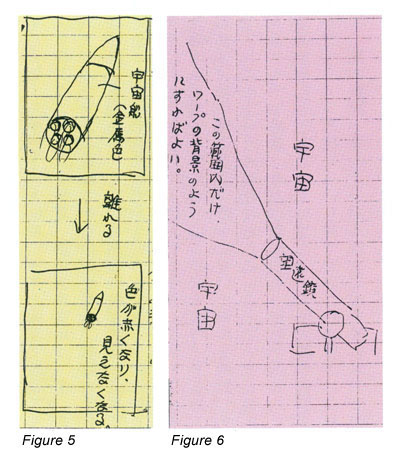 宇宙船
(金属色
離れる
色が赤くなり、
見えなくなる。
Figure 5
この範囲内だけ、
ワープの背景のよう
にすればよい。
宇宙
望遠鏡
宇宙
Figure 6